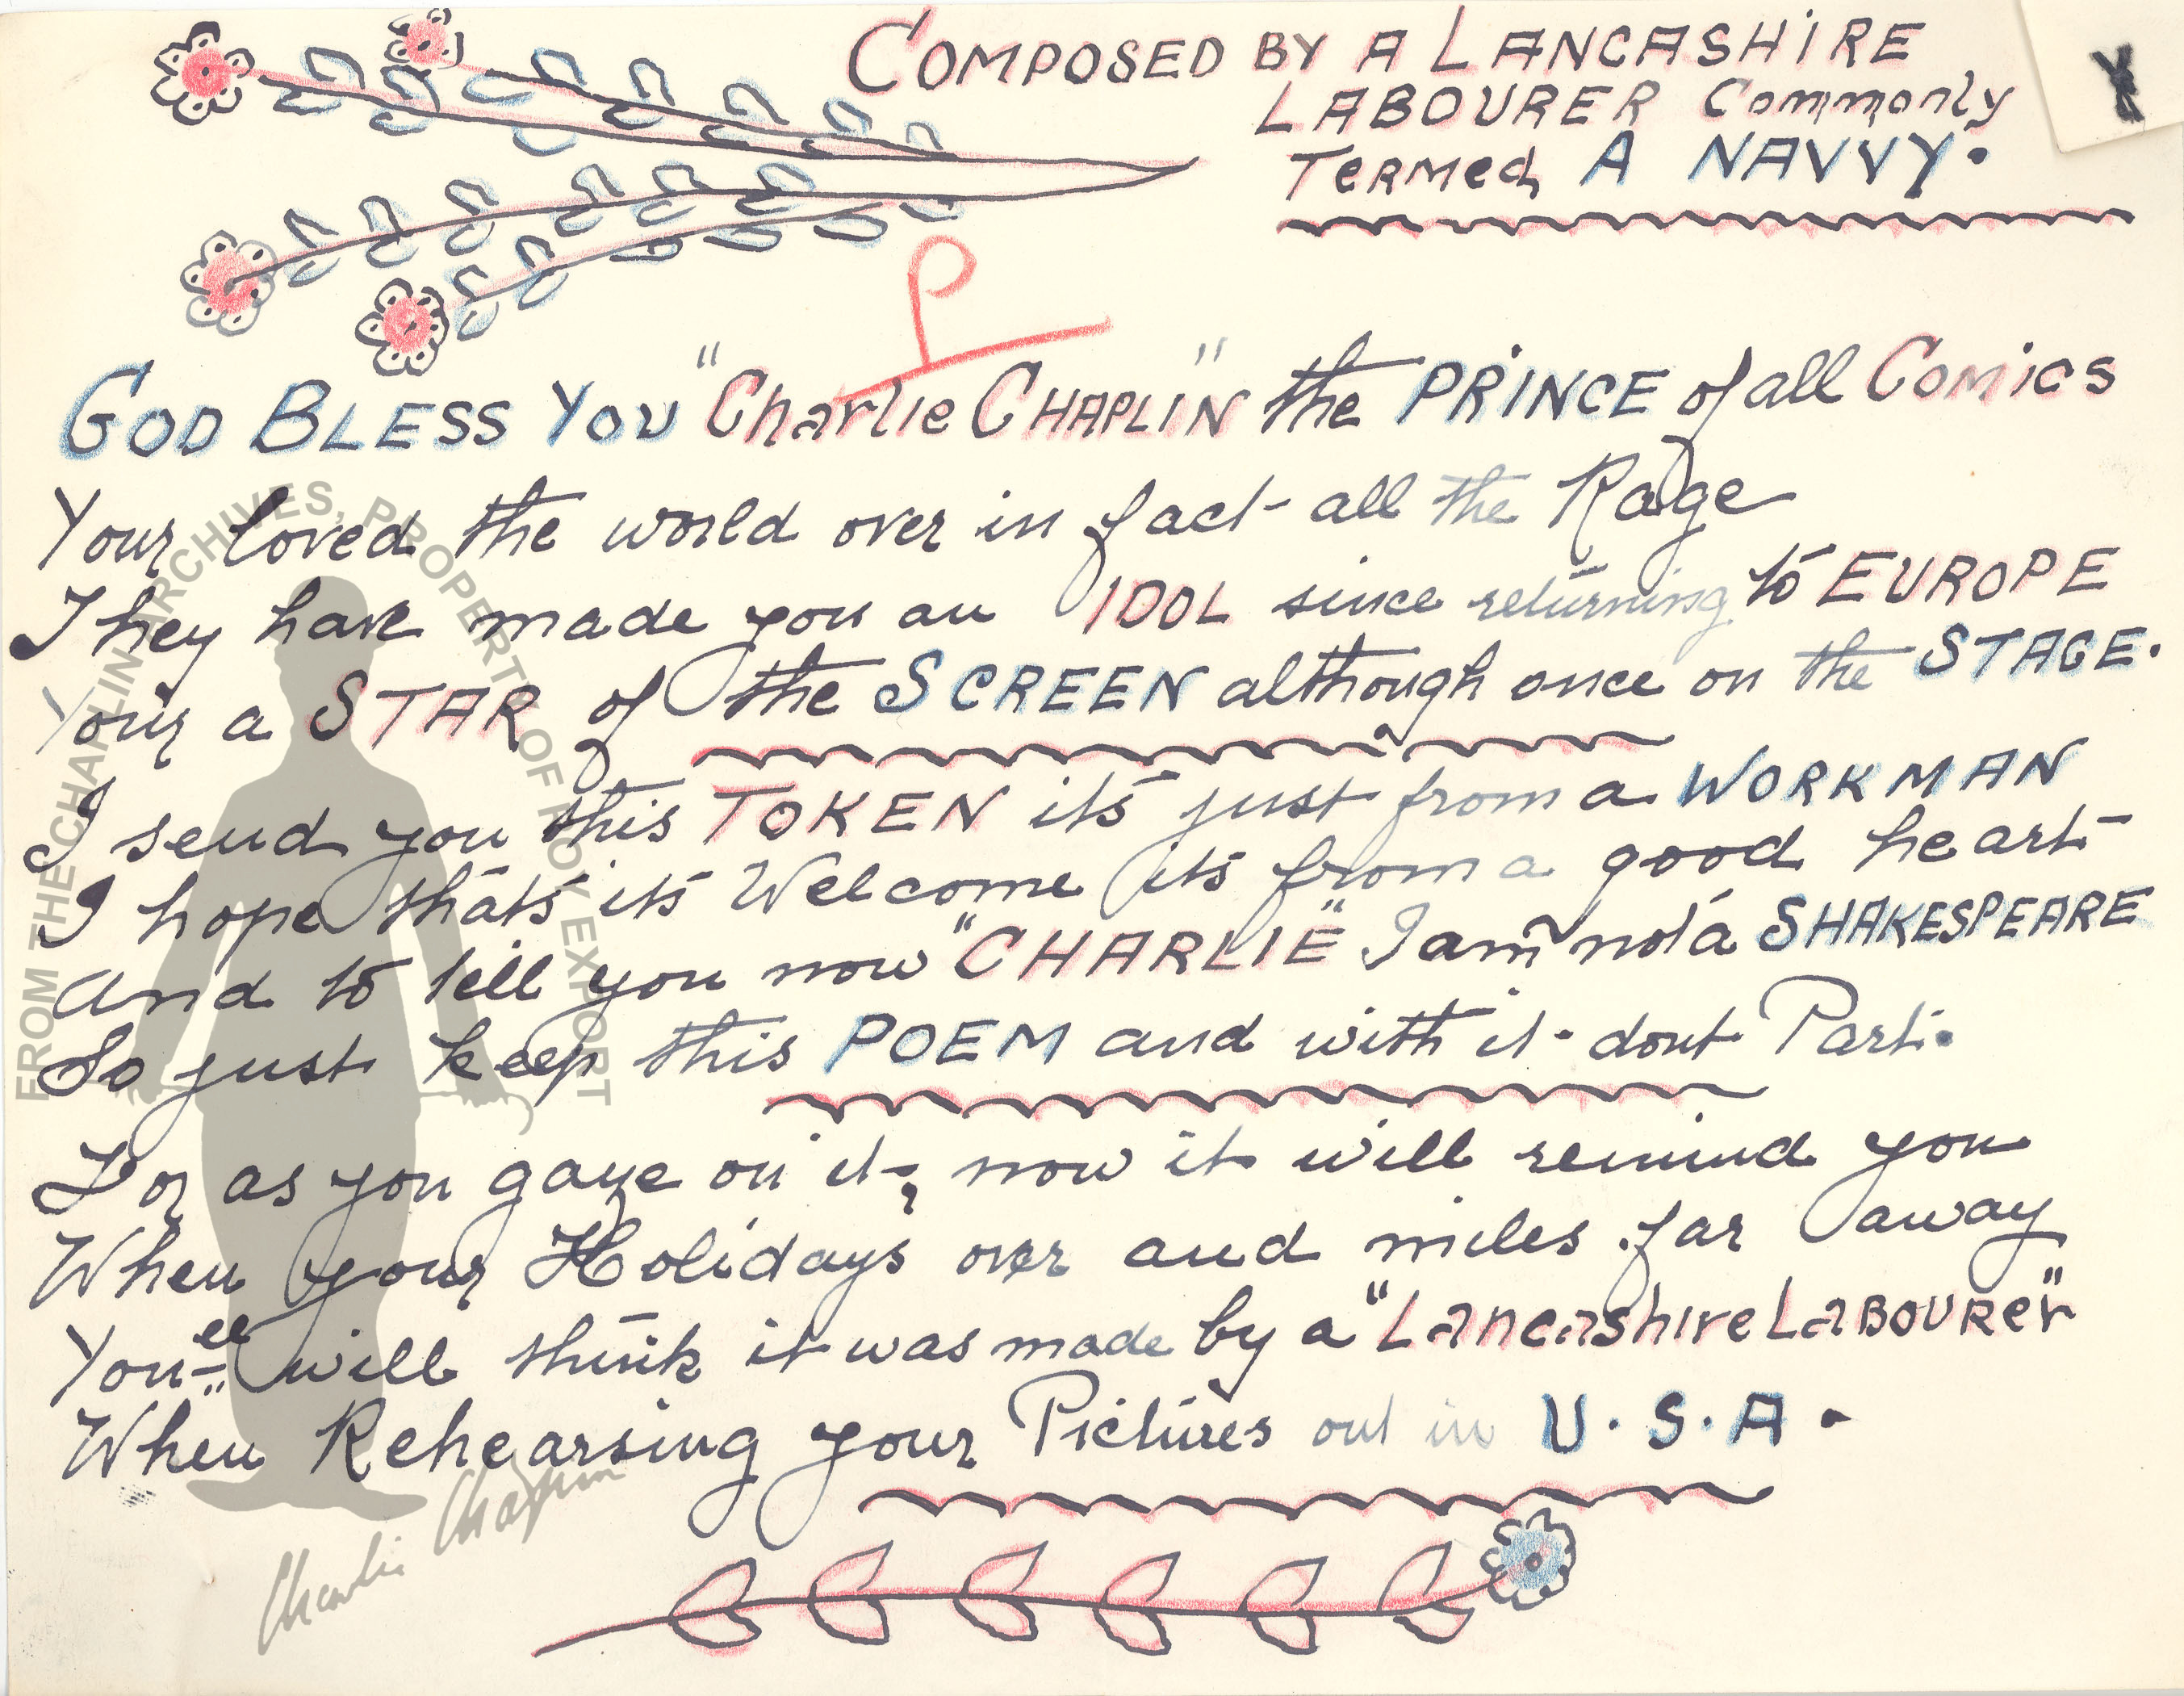 COMPOSED BY A LANCASHIRE
LABOURER Commonly
TERMed A NAVVY.
P
GOD BLESS YOU "Charlie CHAPLIN" the PRINCE of all Comics
Your loved the world over in fact all the Rage
They have made you an IDOL since returning to EUROPE
Your a STAR of the SCREEN although once on the STAGE.
I send you this TOKEN its just from a WORKMAN
I hope thats its Welcome its from a good heart
And to tell you now "CHARLIE" I am not a SHAKESPEARE
So just keep this POEM and with it dont Part.
For as you gaze on it, now it will remind you
When your Holidays over and miles far away
You'll will think it was made by a "Lancashire LABOURer"
When Rehearsing your Pictures out in U.S.A.
FROM THE CHAPLIN ARCHIVES, PROPERTY OF ROY EXPORT
Charlie Chaplin